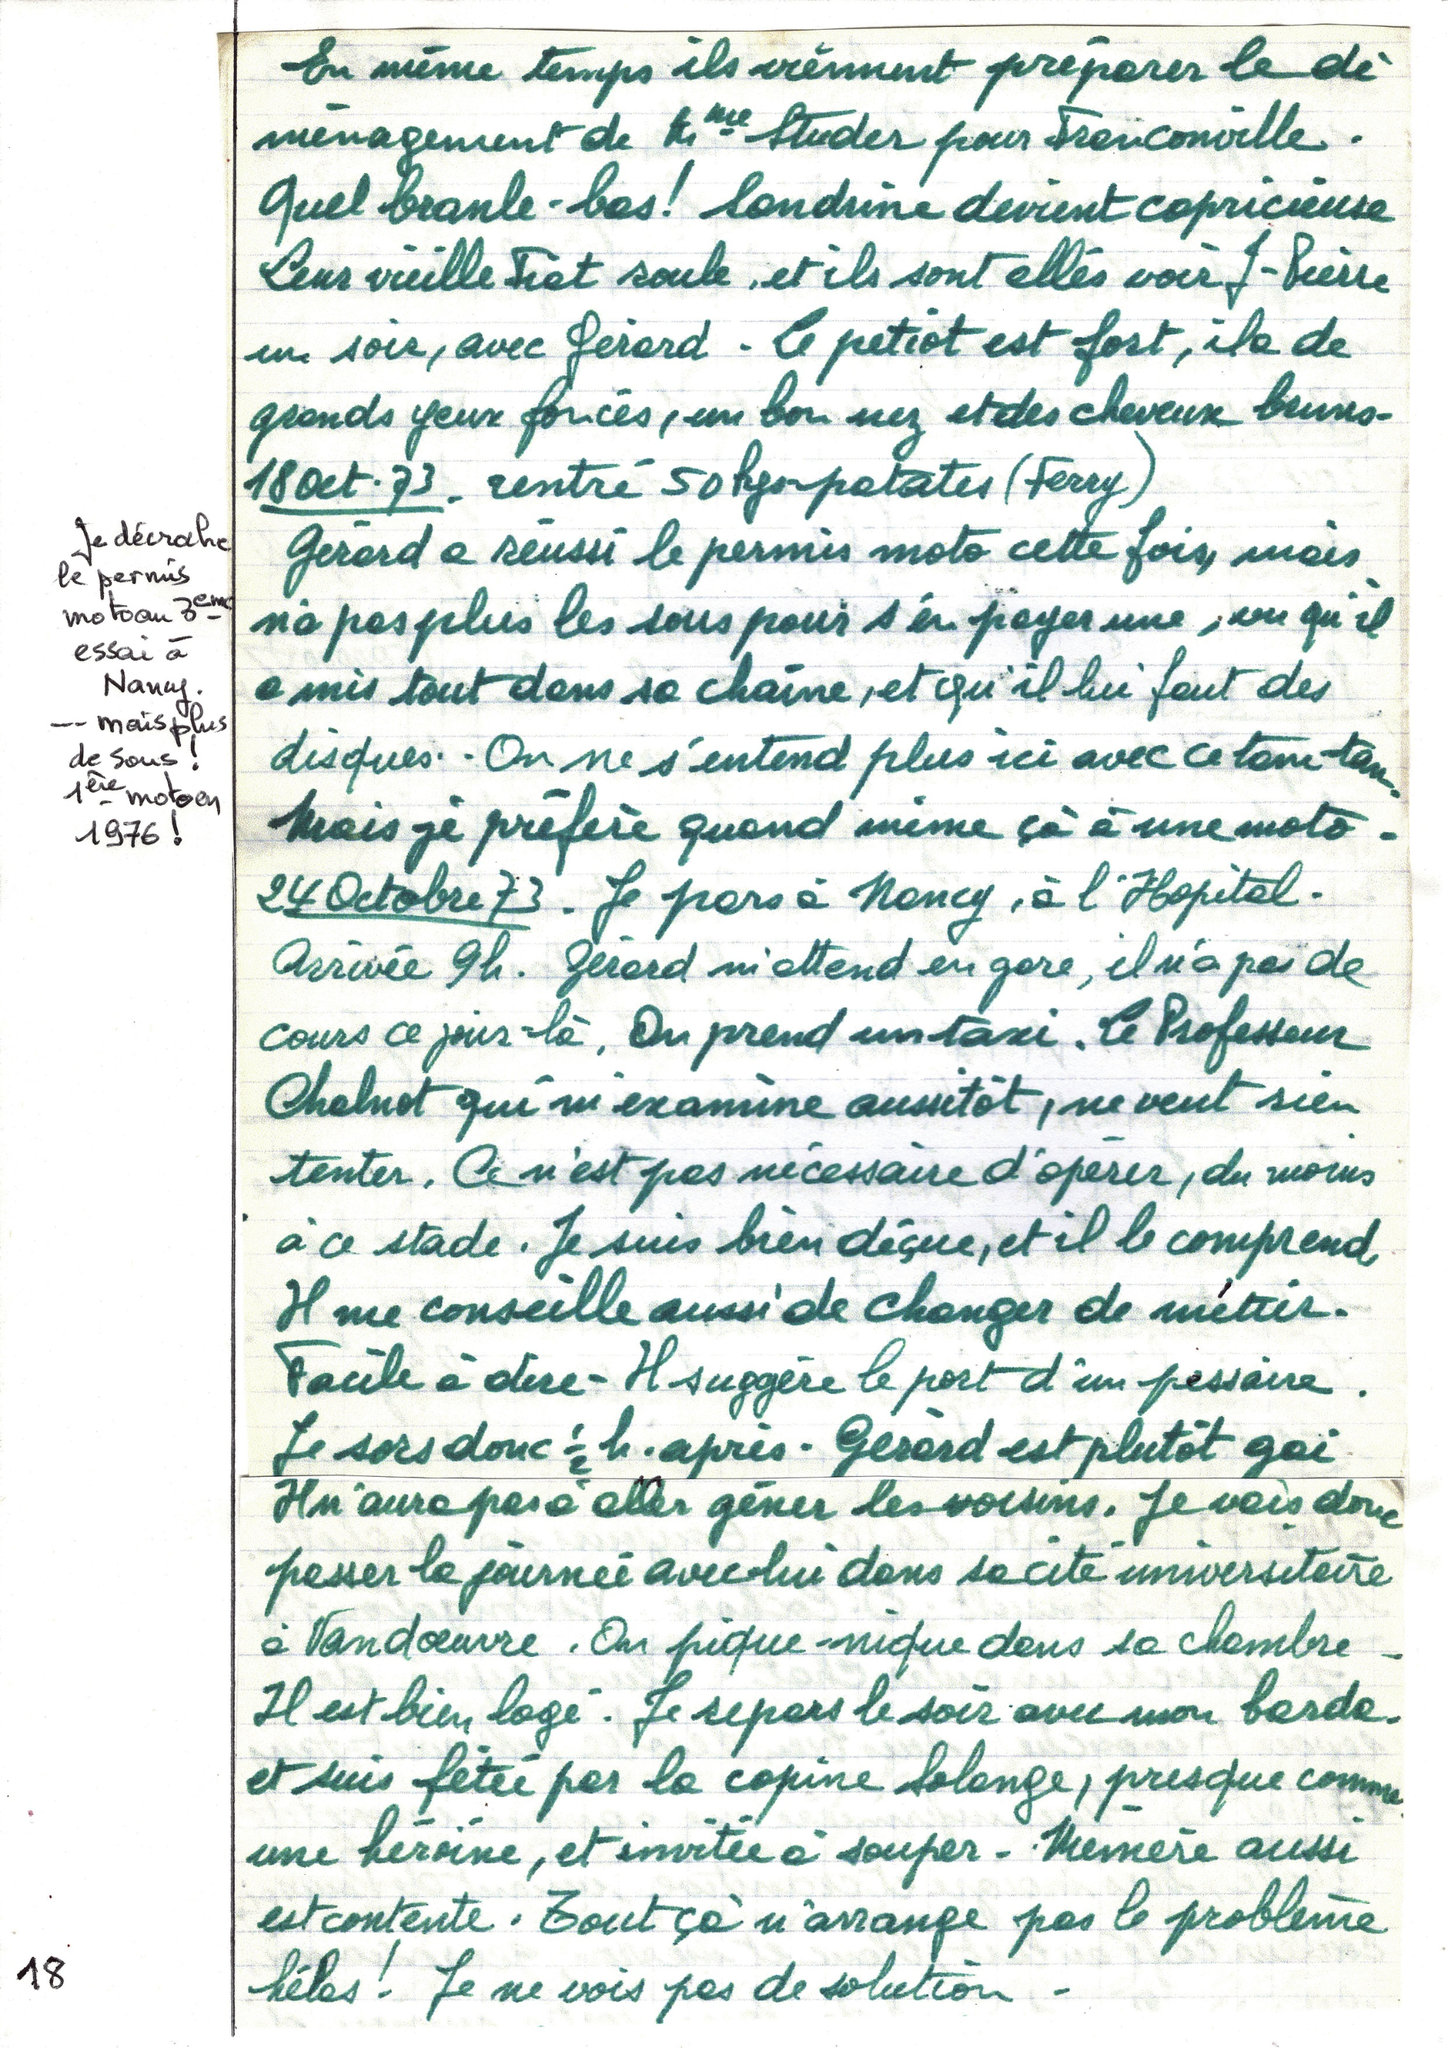 En même temps ils viennent préparer le dé
ménagement de Mme Studer pour Franconville.
Quel branle-bas! Sandrine devient capricieuse
Leur vieille Fiat roule, et ils sont allés voir J-Pierre
un soir, avec Gérard - Le petiot est fort, il a de
grands yeux foncés, un bon nez et des cheveux bruns-
18 Oct. 73. rentré 50 kgs patates (Ferry)
Gérard a réussi le permis moto cette fois, mais
n'a pas plus les sous pour s'en payer une, vu qu'il
a mis tout dans sa chaîne, et qu'il lui faut des
disques.. On ne s'entend plus ici avec ce tam-tam.
Mais je préfère quand même çà à une moto-
24 Octobre 73. Je pars à Nancy, à l'Hopital.
Arrivée 9h. Gérard m'attend en gare, il n'a pas de
cours ce jour-là. On prend un taxi. Le Professeur
Chalnot qui m'examine aussitôt, ne veut rien
tenter. Ce n'est pas nécessaire d'opérer, du moins
à ce stade. Je suis bien déçue, et il le comprend,
Il me conseille aussi de changer de métier.
Facile à dire- Il suggère le port d'un pessaire.
Je sors donc 1/2 h. après. Gérard est plutôt gai
Il n'aura pas à aller gêner les voisins. Je vais donc
passer la journée avec lui dans sa cité universitaire
à Vandœuvre. On pique-nique dans sa chambre-
Il est bien logé. Je repars le soir avec mon barda.
et suis fêtée par la copine Solange, presque comme
une héroïne, et invitée à souper - Mémère aussi
est contente. Tout çà n'arrange pas le problème
hélas! Je ne vois pas de solution -
Je décroche
le permis
moto au 3ème
essai à
Nancy.
--- mais plus
de sous!
1ère moto en
1976!
18